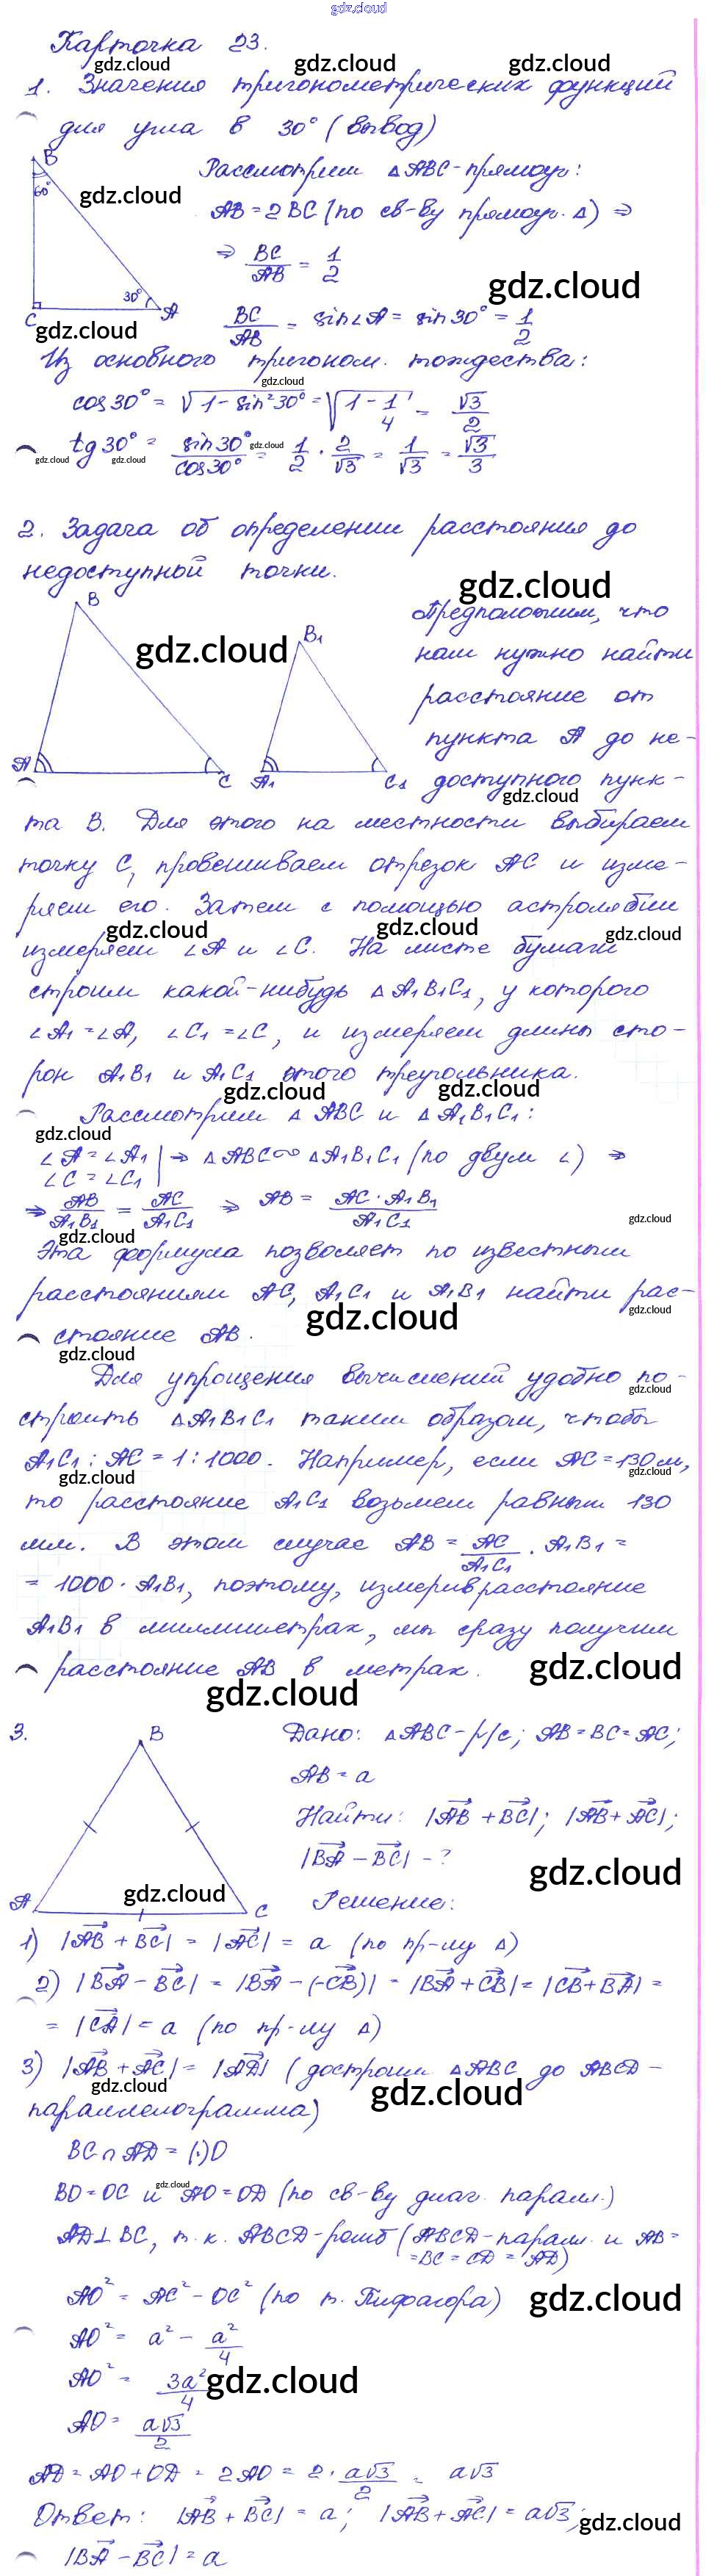 gdz.cloud
Карточка 23.
gdz.cloud gdz.cloud gdz.cloud
1. Значения тригонометрических функций
для угла в 30° (вывод)
B
60°
30°
C A
gdz.cloud
Рассмотрим △ABC-прямоуг:
AB = 2BC (по св-ву прямоуг. △) ⇒
⇒ BC/AB = 1/2
gdz.cloud
BC/AB = sin∠A = sin30° = 1/2
gdz.cloud
Из основного тригоном. тождества:
gdz.cloud
cos30° = √(1-sin²30°) = √(1-1/4) = √3/2
tg30° = sin30°/cos30° = 1/2 · 2/√3 = 1/√3 = √3/3
gdz.cloud gdz.cloud gdz.cloud
2. Задача об определении расстояния до
недоступной точки.
gdz.cloud
B
A C
B1
A1 C1
gdz.cloud
Предположим, что
нам нужно найти
расстояние от
пункта A до не-
доступного пунк-
gdz.cloud
та B. Для этого на местности выбираем
точку C, провешиваем отрезок AC и изме-
ряем его. Затем с помощью астролябии
gdz.cloud gdz.cloud gdz.cloud
измеряем ∠A и ∠C. На листе бумаги
строим какой-нибудь △A1B1C1, у которого
∠A1 = ∠A, ∠C1 = ∠C, и измеряем длины сто-
рон A1B1 и A1C1 этого треугольника.
gdz.cloud gdz.cloud
Рассмотрим △ABC и △A1B1C1:
gdz.cloud
∠A = ∠A1 | ⇒ △ABC∞△A1B1C1 (по двум ∠) ⇒
∠C = ∠C1
⇒ AB/A1B1 = AC/A1C1 ⇒ AB = AC · A1B1/A1C1
gdz.cloud gdz.cloud
Эта формула позволяет по известным
расстояниям AC, A1C1 и A1B1 найти рас-
gdz.cloud gdz.cloud
стояние AB.
gdz.cloud
Для упрощения вычислений удобно по-
gdz.cloud
строить △A1B1C1 таким образом, чтобы
A1C1 : AC = 1:1000. Например, если AC = 130 м,
gdz.cloud gdz.cloud
то расстояние A1C1 возьмем равным 130
мм. В этом случае AB = AC/A1C1 · A1B1 =
= 1000 · A1B1, поэтому, измерив расстояние
A1B1 в миллиметрах, мы сразу получим
расстояние AB в метрах.
gdz.cloud gdz.cloud
3.
B
A C
gdz.cloud
Дано: △ABC - р/с; AB = BC = AC;
AB = a
Найти: |AB + BC|; |AB + AC|;
|BA - BC| - ?
gdz.cloud
Решение:
1) |AB + BC| = |AC| = a (по пр-лу △)
2) |BA - BC| = |BA - (-CB)| = |BA + CB| = |CB + BA| =
= |CA| = a (по пр-лу △)
3) |AB + AC| = |AD| (достроим △ABC до ABCD -
gdz.cloud gdz.cloud
параллелограмма)
BC ∩ AD = (·)O
gdz.cloud
BO = OC и AO = OD (по св-ву диаг. паралл.)
AD⊥BC, т.к. ABCD-ромб (ABCD-паралл. и AB =
= BC = CD = AD)
AO² = AC² - OC² (по т. Пифагора)
gdz.cloud
AO² = a² - a²/4
AO² = 3a²/4
gdz.cloud
AO = a√3/2
AD = AO + OD = 2AO = 2 · a√3/2 = a√3
Ответ: |AB + BC| = a; |AB + AC| = a√3;
gdz.cloud
|BA - BC| = a